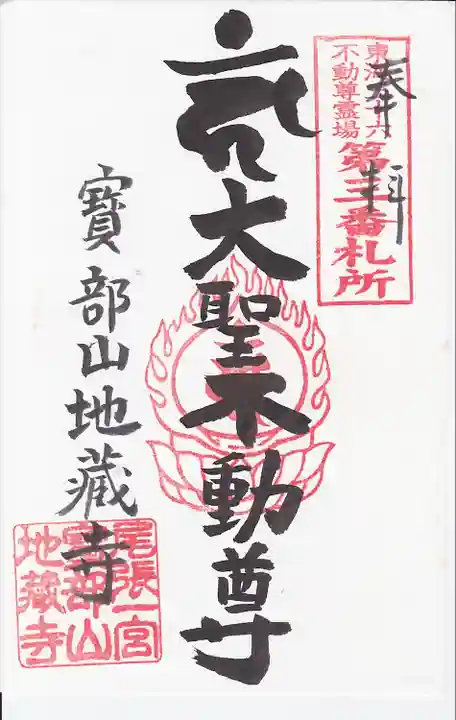 奉拝
東海三十六
不動尊霊場
第三番札所
大聖不動尊
寶部山地蔵寺
尾張一宮
寶部山
地蔵寺